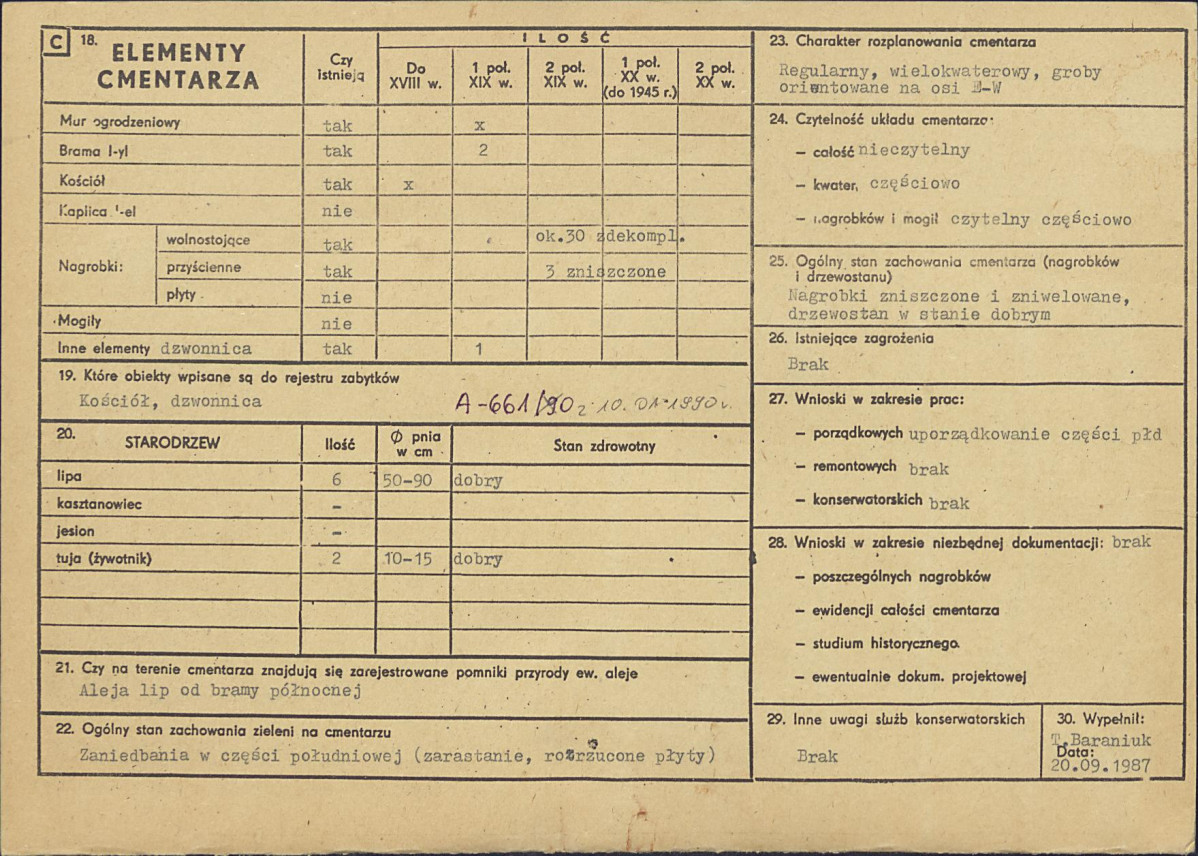 C 18. ELEMENTY CMENTARZA
Czy istnieją
ILOŚĆ
Do XVIII w.
1 poł. XIX w.
2 poł. XIX w.
1 poł. XX w. (do 1945 r.)
2 poł. XX w.
Mur ogrodzeniowy tak x
Brama I-yl tak 2
Kościół tak x
Kaplica -el nie
Nagrobki: wolnostojące tak ok.30 zdekompl.
przyścienne tak 3 zniszczone
płyty nie
Mogiły nie
Inne elementy dzwonnica tak 1
19. Które obiekty wpisane są do rejestru zabytków
Kościół, dzwonnica A-661/90 z 10.01.1990r.
20. STARODRZEW Ilość Ø pnia w cm Stan zdrowotny
lipa 6 50-90 dobry
kasztanowiec -
jesion -
tuja (żywotnik) 2 10-15 dobry
21. Czy na terenie cmentarza znajdują się zarejestrowane pomniki przyrody ew. aleje
Aleja lip od bramy północnej
22. Ogólny stan zachowania zieleni na cmentarzu
Zaniedbania w części południowej (zarastanie, rozrzucone płyty)
23. Charakter rozplanowania cmentarza
Regularny, wielokwaterowy, groby
orientowane na osi E-W
24. Czytelność układu cmentarza:
- całość nieczytelny
- kwater, częściowo
- nagrobków i mogił czytelny częściowo
25. Ogólny stan zachowania cmentarza (nagrobków
i drzewostanu)
Nagrobki zniszczone i zniwelowane,
drzewostan w stanie dobrym
26. Istniejące zagrożenia
Brak
27. Wnioski w zakresie prac:
- porządkowych uporządkowanie części płd
- remontowych brak
- konserwatorskich brak
28. Wnioski w zakresie niezbędnej dokumentacji: brak
- poszczególnych nagrobków
- ewidencji całości cmentarza
- studium historycznego
- ewentualnie dokum. projektowej
29. Inne uwagi służb konserwatorskich
Brak
30. Wypełnił:
T.Baraniuk
Data:
20.09.1987